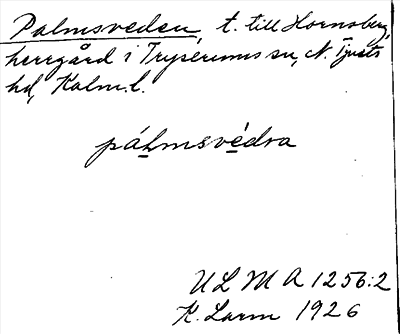 Palmsveden, t. till Hornsberg,
herrgård i Tryserums sn, N. Tjusts
hd, Kalm. l.
pálmsvédra
ULMA 1256:2
K. Larm 1926